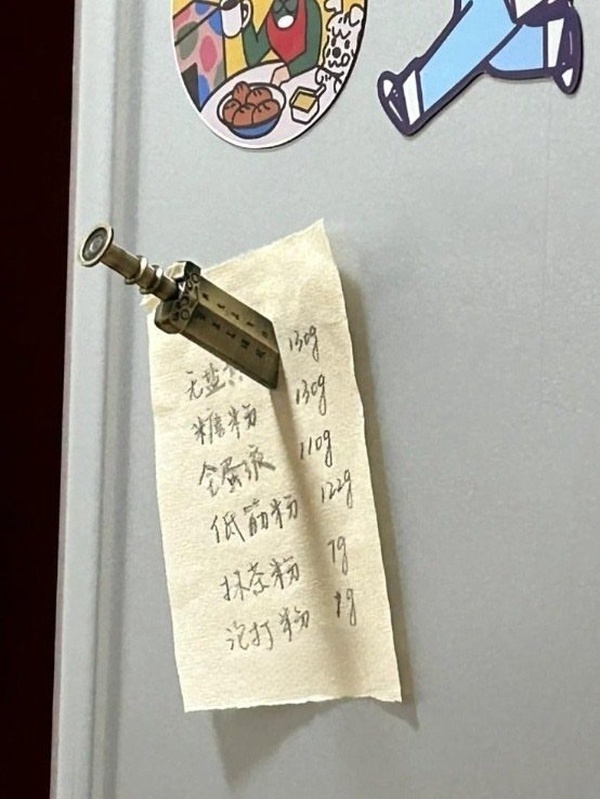 无盐 130g
糖粉 130g
全蛋液 110g
低筋粉 122g
抹茶粉 7g
泡打粉 1g